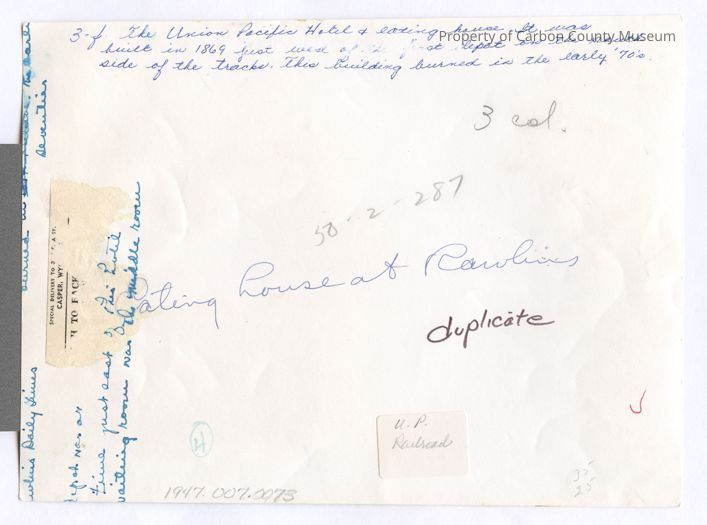 3-f. The Union Pacific Hotel & eating house. It was
built in 1869 just west of the first depot on the
side of the tracks. This building burned in the early '70's.
Property of Carbon County Museum
3 col.
50-2-287
Eating house at Rawlins
duplicate
U. P.
Railroad
1947.007.0073
35
25
I
burned in
Seventies
SPECIAL DELIVERY TO
CASPER, WY
TO BACK
Daily Times
depot was at
time just east of this hotel
waiting room was the middle room